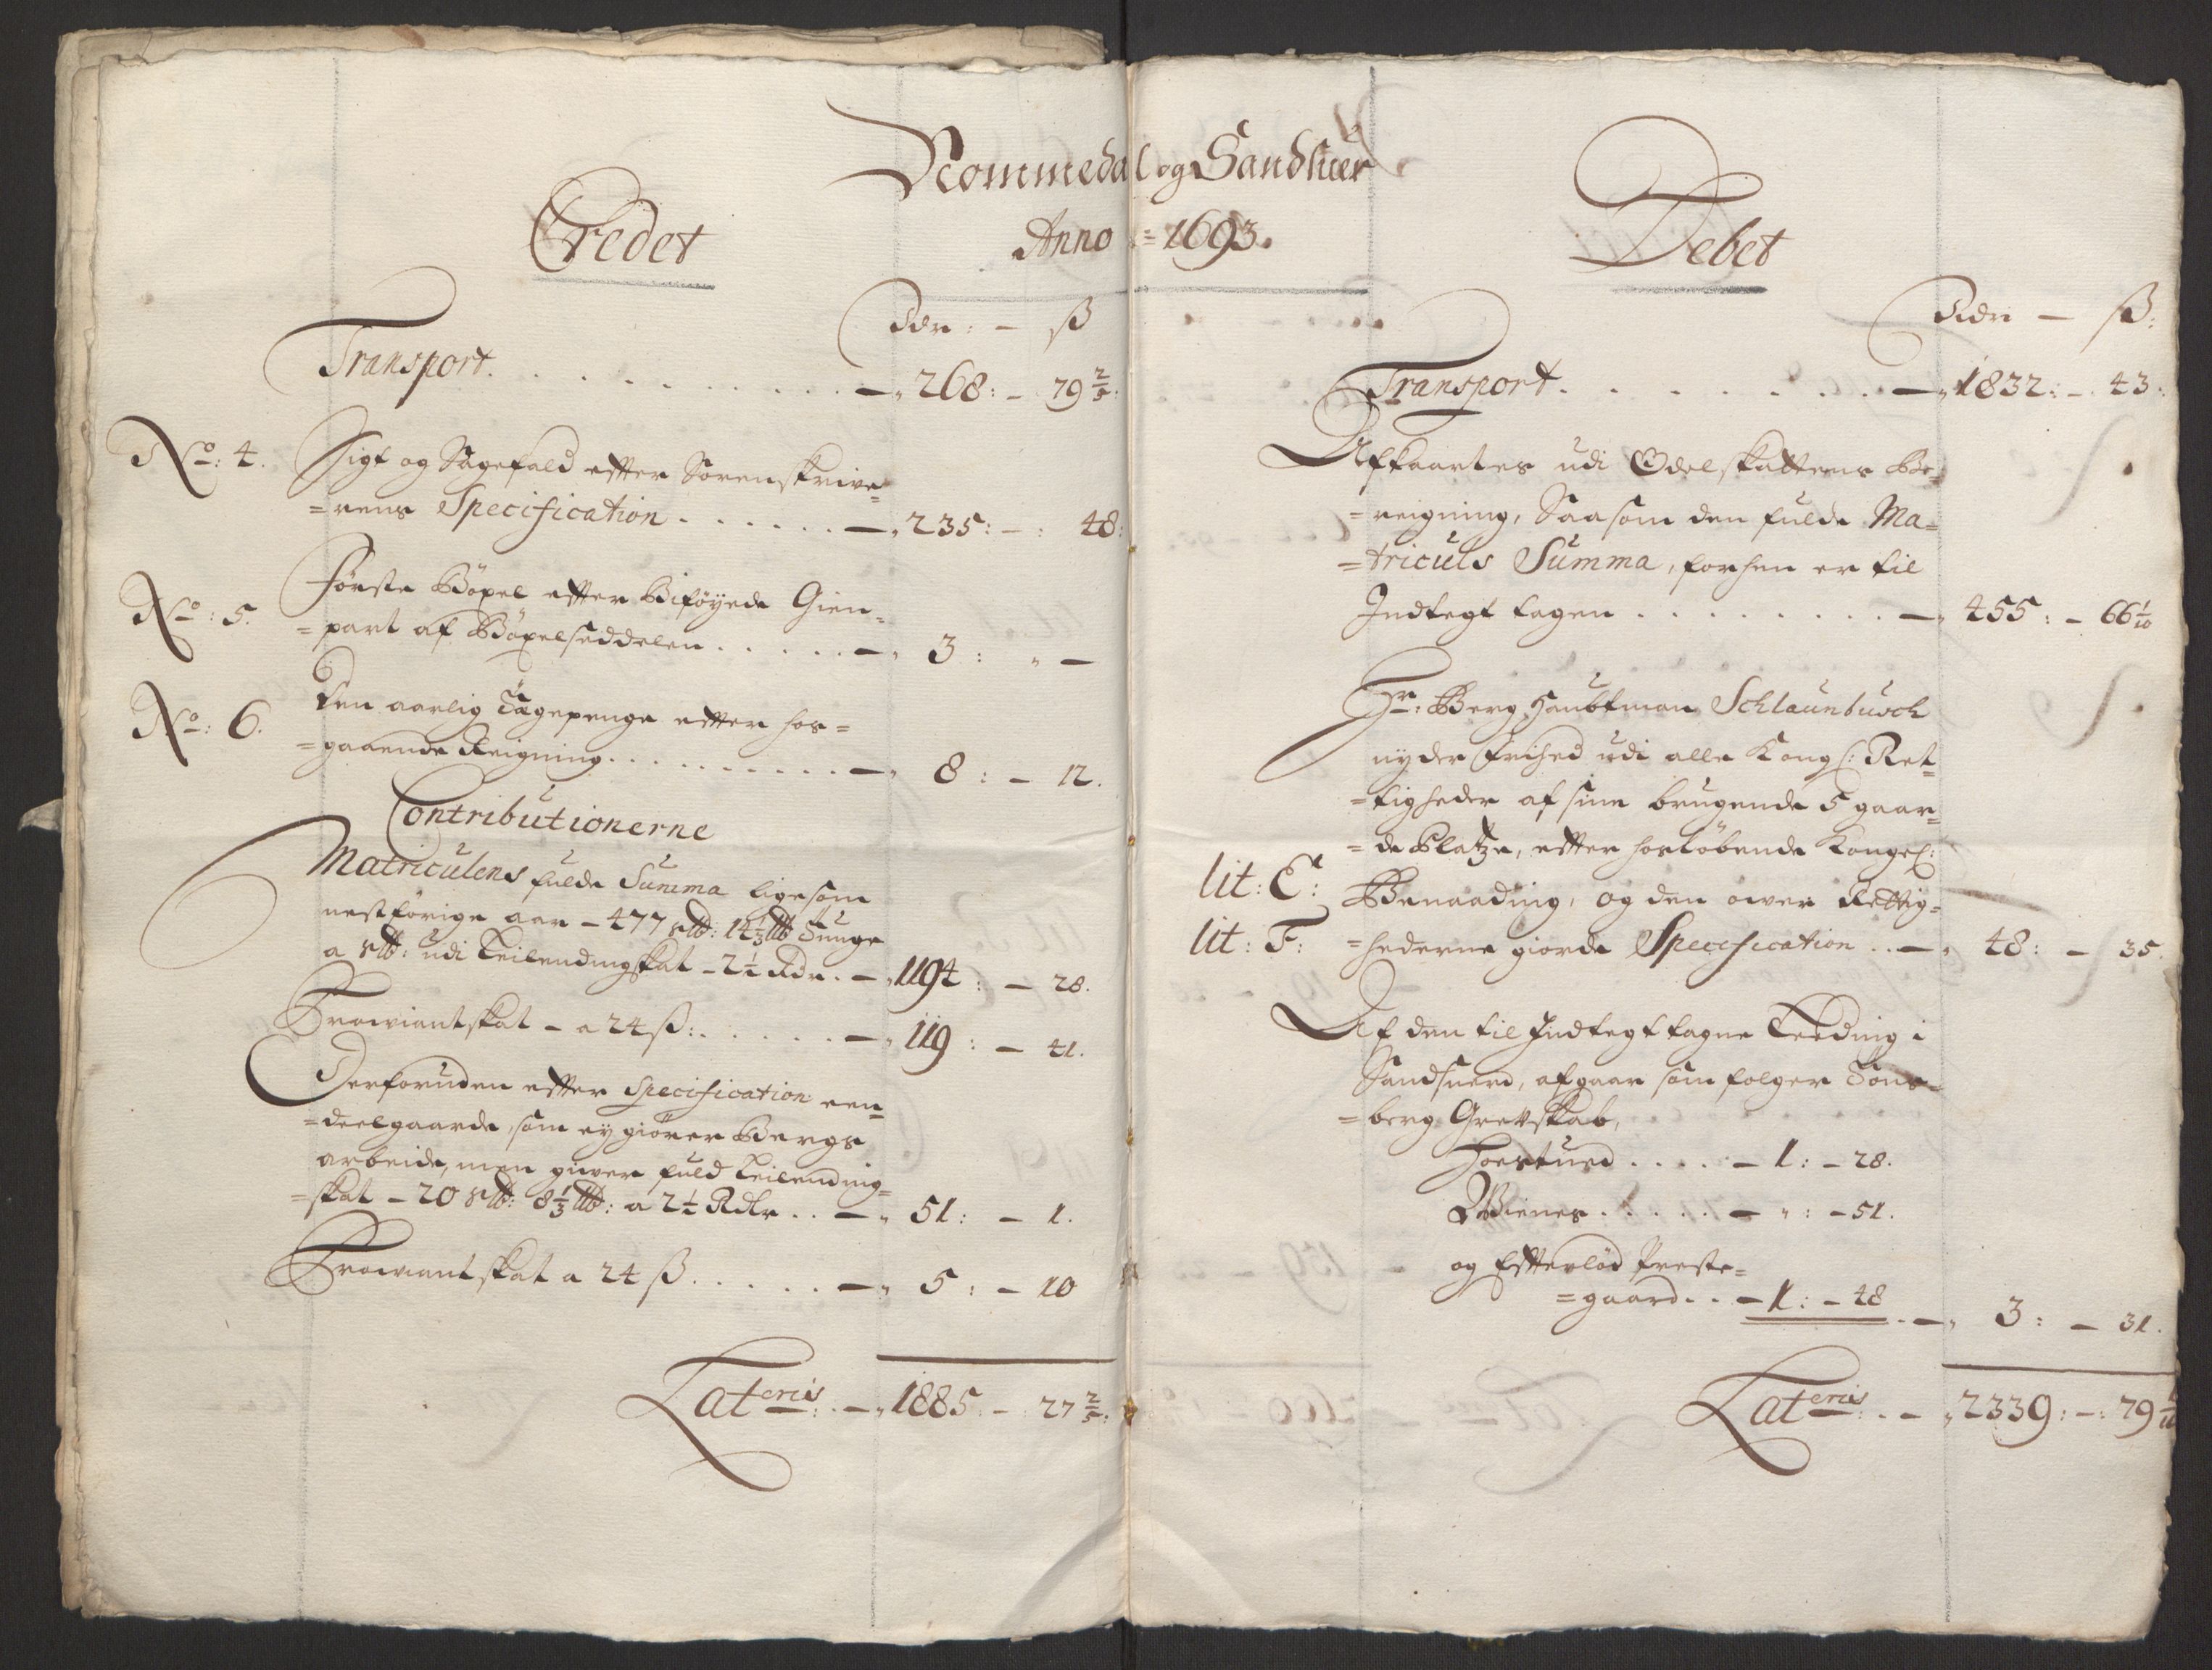 Nommedal og Sandsuer
Anno = 1693.
Credet
Rdr: — ß
Transport. . . . . . . . . . —„ 268: — 79 2/5:
No: 4. Sigt og Sagefald efter Sorenskrive=
=rens Specification . . . . . . —„ 235: — : 48:
No: 5. Förste Böxel efter Biföyede Gien=
=part af Böxelseddelen . . . . . —„ 3 : „ —
No: 6. Den aarlig Tægepenge efter hos=
=gaaende Reigning. . . . . . . . . . —„ 8 : — 12.
Contributionerne
Matriculens fulde Summa ligesom
nestforige aar — 477 slb: 14 1/3 lb Tunge
a slb: udi Leilendingskat — 2 1/2 Rdr. —„ 1194 : — 28.
Provviantskat — a 24 ß: . . . . . —„ 119 : — 41.
Derforuden efter Specification een=
=deel gaarde, som ey giörer Bergs
arbeide, men giver fuld Leilending=
=skat — 20 slb: 8 1/3 lb: a 2 1/2 Rdlr . . —„ 51: — 1.
Provviantskat a 24 ß . . . . . —„ 5 : — 10
Lateris: . —„ 1885 — 27 2/5:
Debet
Rdr — ß:
Transport. . . . . . . . —„ 1832: — 43:
Afkaartes udi Odelskattens Be=
=reigning, Saasom den fulde Ma=
=triculs Summa, forhen er til
Indtegt tagen . . . . . . . . —„ 455 : — 66 1/10
Hr: Berg Haubtman Schlaunbusch
nyder frihed udi alle Kongl: Ret=
=tigheder af sine brugende 5 gaar=
=de Platze, efter hoslöbende Kongel:
lit: E: Benaading, og den over Rettig=
lit: F: =hederne giorde Specification . . —„ 48: — 35.
Af den til Indtegt tagne Leeding i
Sandsuerd, afgaar som folger Töns=
=berg Grefskab,
Foestued . . . . — 1: — 28.
Wienes . . . . . — „ : — 51.
og Efterlöd Preste=
=gaard. . — 1: — 48 . —„ 3: — 31.
Lateris: . — „ 2339: —: 79 1/10